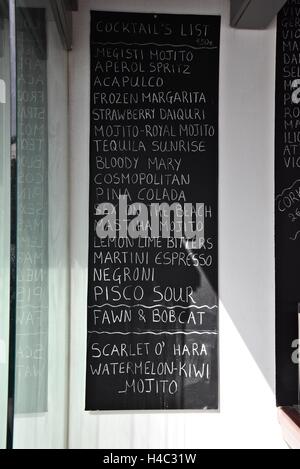 COCKTAIL'S LIST
MEGISTI MOJITO
APEROL SPRITZ
ACAPULCO
FROZEN MARGARITA
STRAWBERRY DAIQURI
MOJITO-ROYAL MOJITO
TEQUILA SUNRISE
BLOODY MARY
COSMOPOLITAN
PINA COLADA
SEX IN THE BEACH
MASTIHA MOJITO
LEMON LIME BITTERS
MARTINI ESPRESSO
NEGRONI
PISCO SOUR
FAWN & BOBCAT
SCARLET O' HARA
WATERMELON-KIWI
MOJITO
alamy
Image ID: H4C31W
www.alamy.com